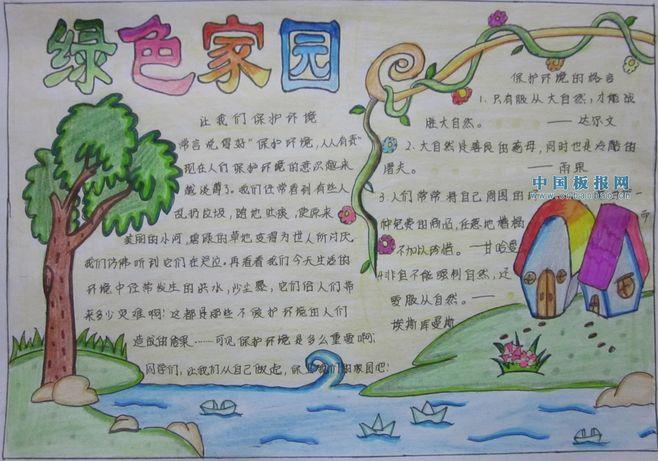 绿色家园
让我们保护环境
常言说得好"保护环境,人人有责"
现在人们保护环境的意识越来
越淡薄了。我们经常看到有些人
乱扔垃圾,随地吐痰,使原来
美丽的小河,碧绿的草地变得为世人所讨厌
我们仿佛听到它们在哭泣。再看看我们今天生活的
环境中经常发生的洪水,沙尘暴,它们给人们带
来多少灾难啊!这都是那些不爱护环境的人们
造成的后果……可见保护环境是多么重要啊!
同学们,让我们从自己做起,保护我们的家园吧!
保护环境的格言
1.只有服从大自然,才能战
胜大自然。——达尔文
2.大自然是善良的慈母,同时也是冷酷的
屠夫。——雨果
中国板报网
3.人们常常将自己周围的
种免费的商品,任意地糟蹋
不加以珍惜。—甘哈曼
4.非但不能强制自然,还
要服从自然。——
埃斯库曼斯